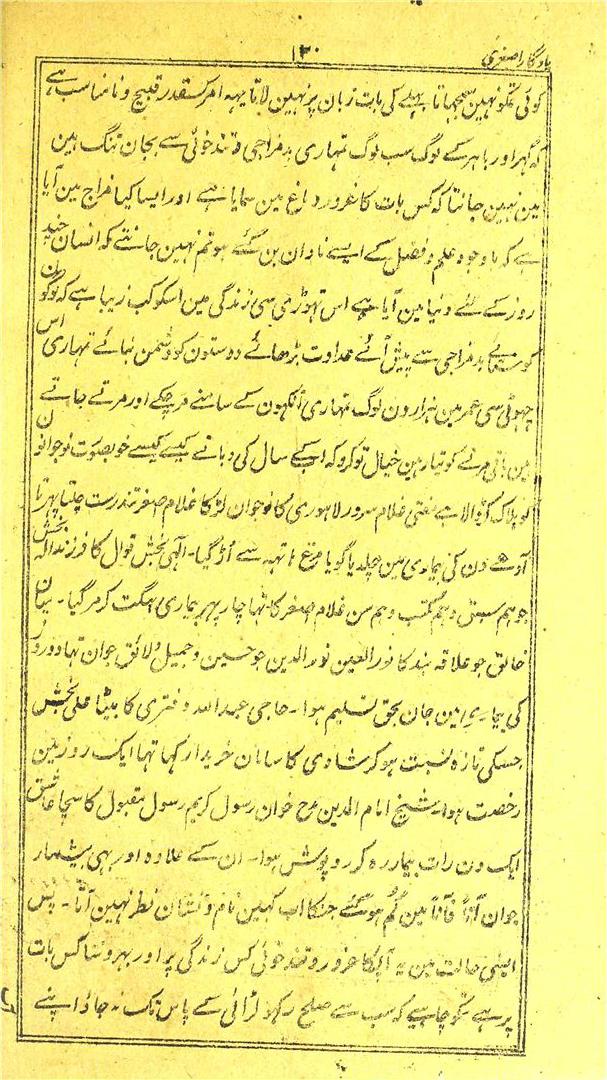 یادگار اصغری
۱۳۰
کوئی تمکو نہین سمجھاتا بھلے کی بات زبان پر نہین لاتا یہہ امر کسقدر قبیح و نامناسب ہے
کہ گہر اور باہر کے لوگ سب لوگ تمہاری بد مزاجی و تند خوئی سے بجان تنگ ہین
مین نہین جانتا کہ کس بات کا غرور دماغ مین سمایا ہے اور ایسا کیا مزاج مین آیا
ہے کہ باوجود علم و فضل کے ایسے نادان بن گئے ہو تم نہین جانتے کہ انسان چند
روز کے لئے دنیا مین آیا ہے اس تہوڑی سی زندگی مین اسکو کب زیبا ہے کہ لوگون
کو ستائے بد مزاجی سے پیش آئے عداوت بڑھائے دوستون کو دشمن بنائے تمہاری اس
چہوٹی سی عمر مین ہزارون لوگ تمہاری آنکہون کے سامنے مر چکے اور مرتے جاتے
ہین باقی مرنے کو تیار ہین خیال تو کرو کہ ابکے سال کی وبا نے کیسے کیسے خوبصورت نوجوانون
کو ہلاک کر ڈالا ہے مفتی غلام سرور لاہوری کا نوجوان لڑکا غلام صفدر تندرست چلتا پہرتا
آدہے دن کی بیماری مین چلدیا گویا مرغ ہاتہہ سے اڑ گیا۔ الٰہی بخش قوال کا فرزند اللہ بخش
جو ہم سبق و ہم مکتب و ہم سن غلام اصغر کا تہا چار پہر بیماری بہگت کر مر گیا۔ میان
خالق جو علاقہ بند کا نور العین نور الدین جو حسین و جمیل و لائق جوان تہا دو روز
کی بیماری مین جان بحق تسلیم ہوا۔ حاجی عبد اللہ دفتری کا بیٹا علی بخش
جسکی تازہ نسبت ہو کر شادی کا سامان خرید رکہا تہا ایک روز مین
رخصت ہوا۔ شیخ امام الدین مدح خوان رسول کریم رسول مقبول کا سچا عاشق
ایک دن رات بیمار رہ کر روپوش ہوا۔ ان کے علاوہ اور بہی بیشمار
جوان آناً فاناً مین گم ہو گئے جنکا اب کہین نام و نشان نظر نہین آتا۔ پس
ایسی حالت مین یہ آپکا غرور و تند خوئی کس زندگی پر اور بہروسا کس بات
پر ہے تمکو چاہیے کہ سب سے صلح رکہو لڑائی کے پاس تک نہ جاؤ اپنے